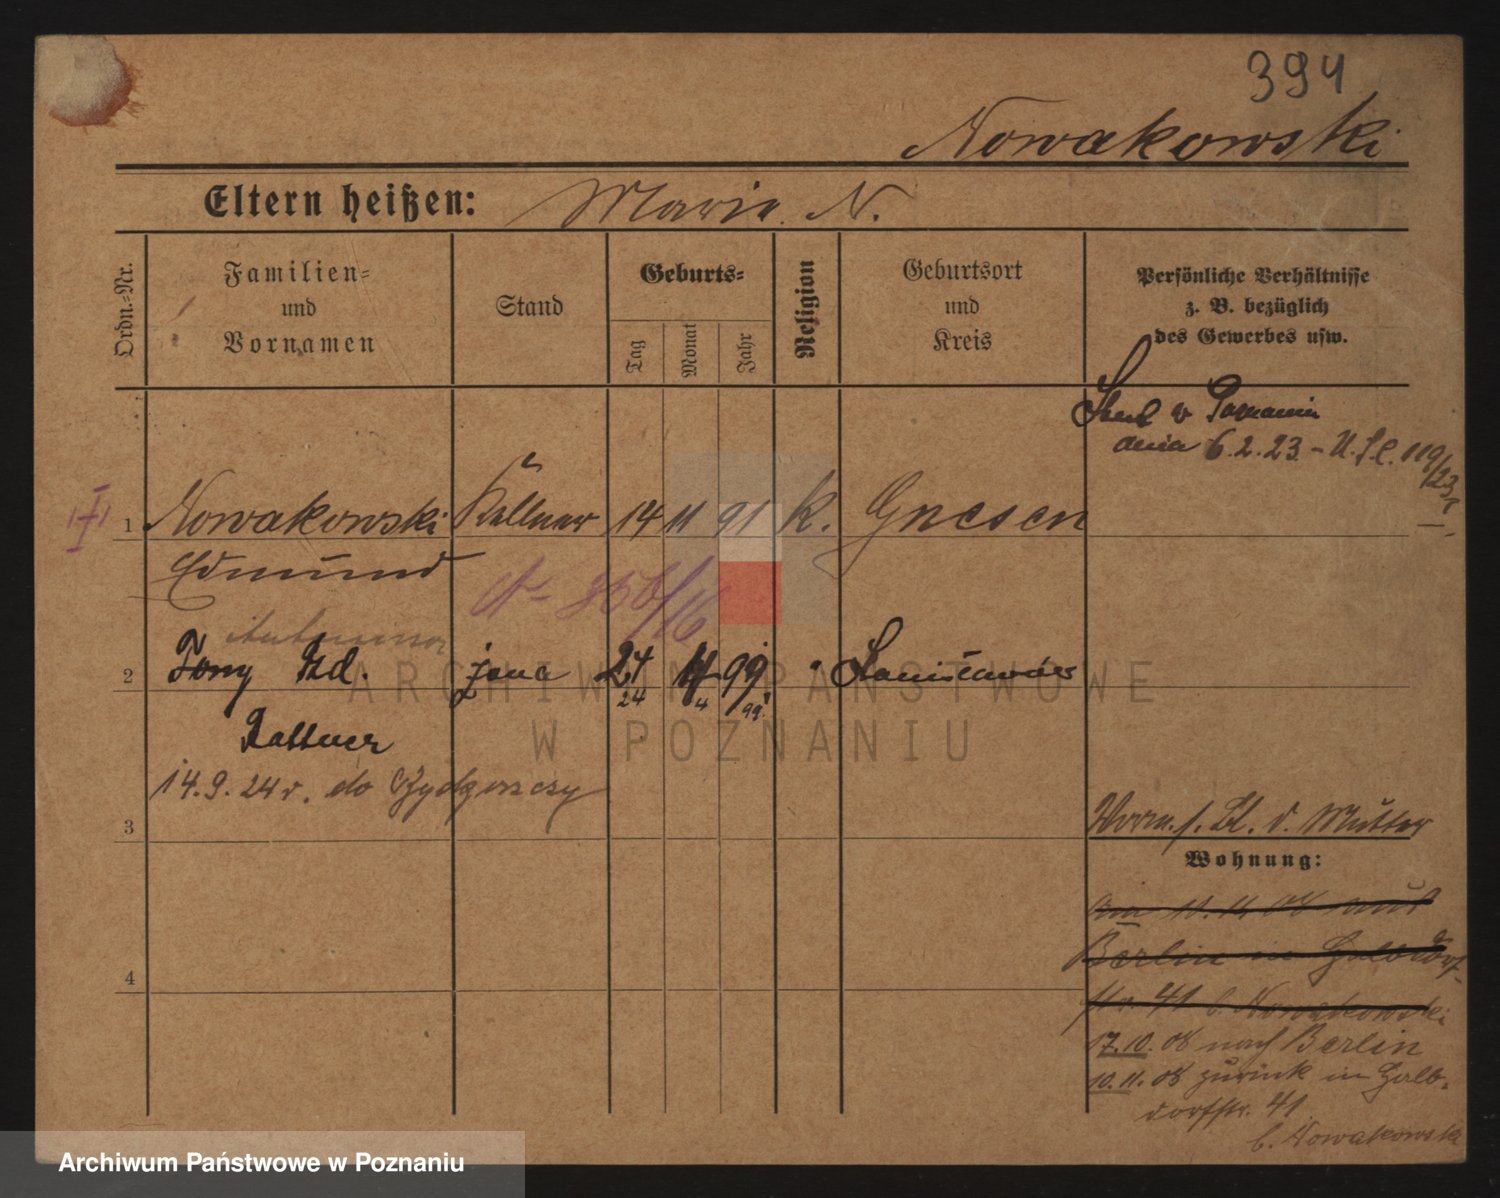 394
Nowakowski
Eltern heißen: Marie N.
Ordn.=Nr.
Familien=
und
Vornamen
Stand
Geburts=
Tag
Monat
Jahr
Religion
Geburtsort
und
Kreis
Persönliche Verhältnisse
z. B. bezüglich
des Gewerbes usw.
w Poznaniu
dnia 6.2.23 - U.S.C. 119/23
1 Nowakowski Kellner 14 11 91 k. Gnesen
Edmund
2 Tony żona 24 4 99 Stanisławów
24 4 99
Kellner
14.9.24 r. do Bydgoszczy
3
Vorm. s. Bl. d. Mutter
Wohnung:
am 10.11.08 aus
Berlin in Halbdorf-
str. 41 b. Nowakowski
4
17.10.08 nach Berlin
10.11.08 zurück in Halb-
dorfstr. 41
b. Nowakowski
ARCHIWUM PAŃSTWOWE
W POZNANIU
Archiwum Państwowe w Poznaniu